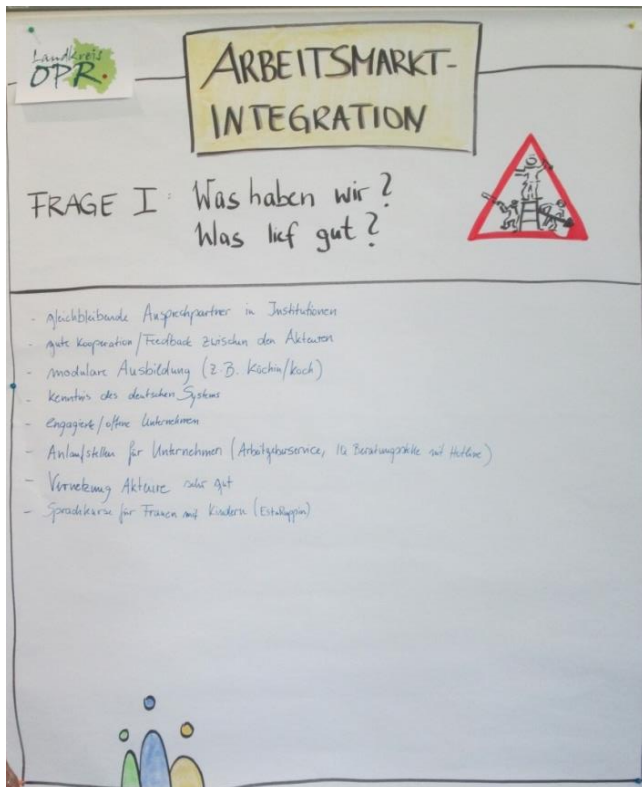 Landkreis
OPR.
ARBEITSMARKT-
INTEGRATION
FRAGE I: Was haben wir?
Was lief gut?
- gleichbleibende Ansprechpartner in Institutionen
- gute Kooperation/Feedback zwischen den Akteuren
- modulare Ausbildung (z.B. Köchin/Koch)
- Kenntnis des deutschen Systems
- engagierte/offene Unternehmen
- Anlaufstellen für Unternehmen (Arbeitgeberservice, IQ Beratungsstelle mit Hotline)
- Vernetzung Akteure sehr gut
- Sprachkurse für Frauen mit Kindern (EstaRuppin)